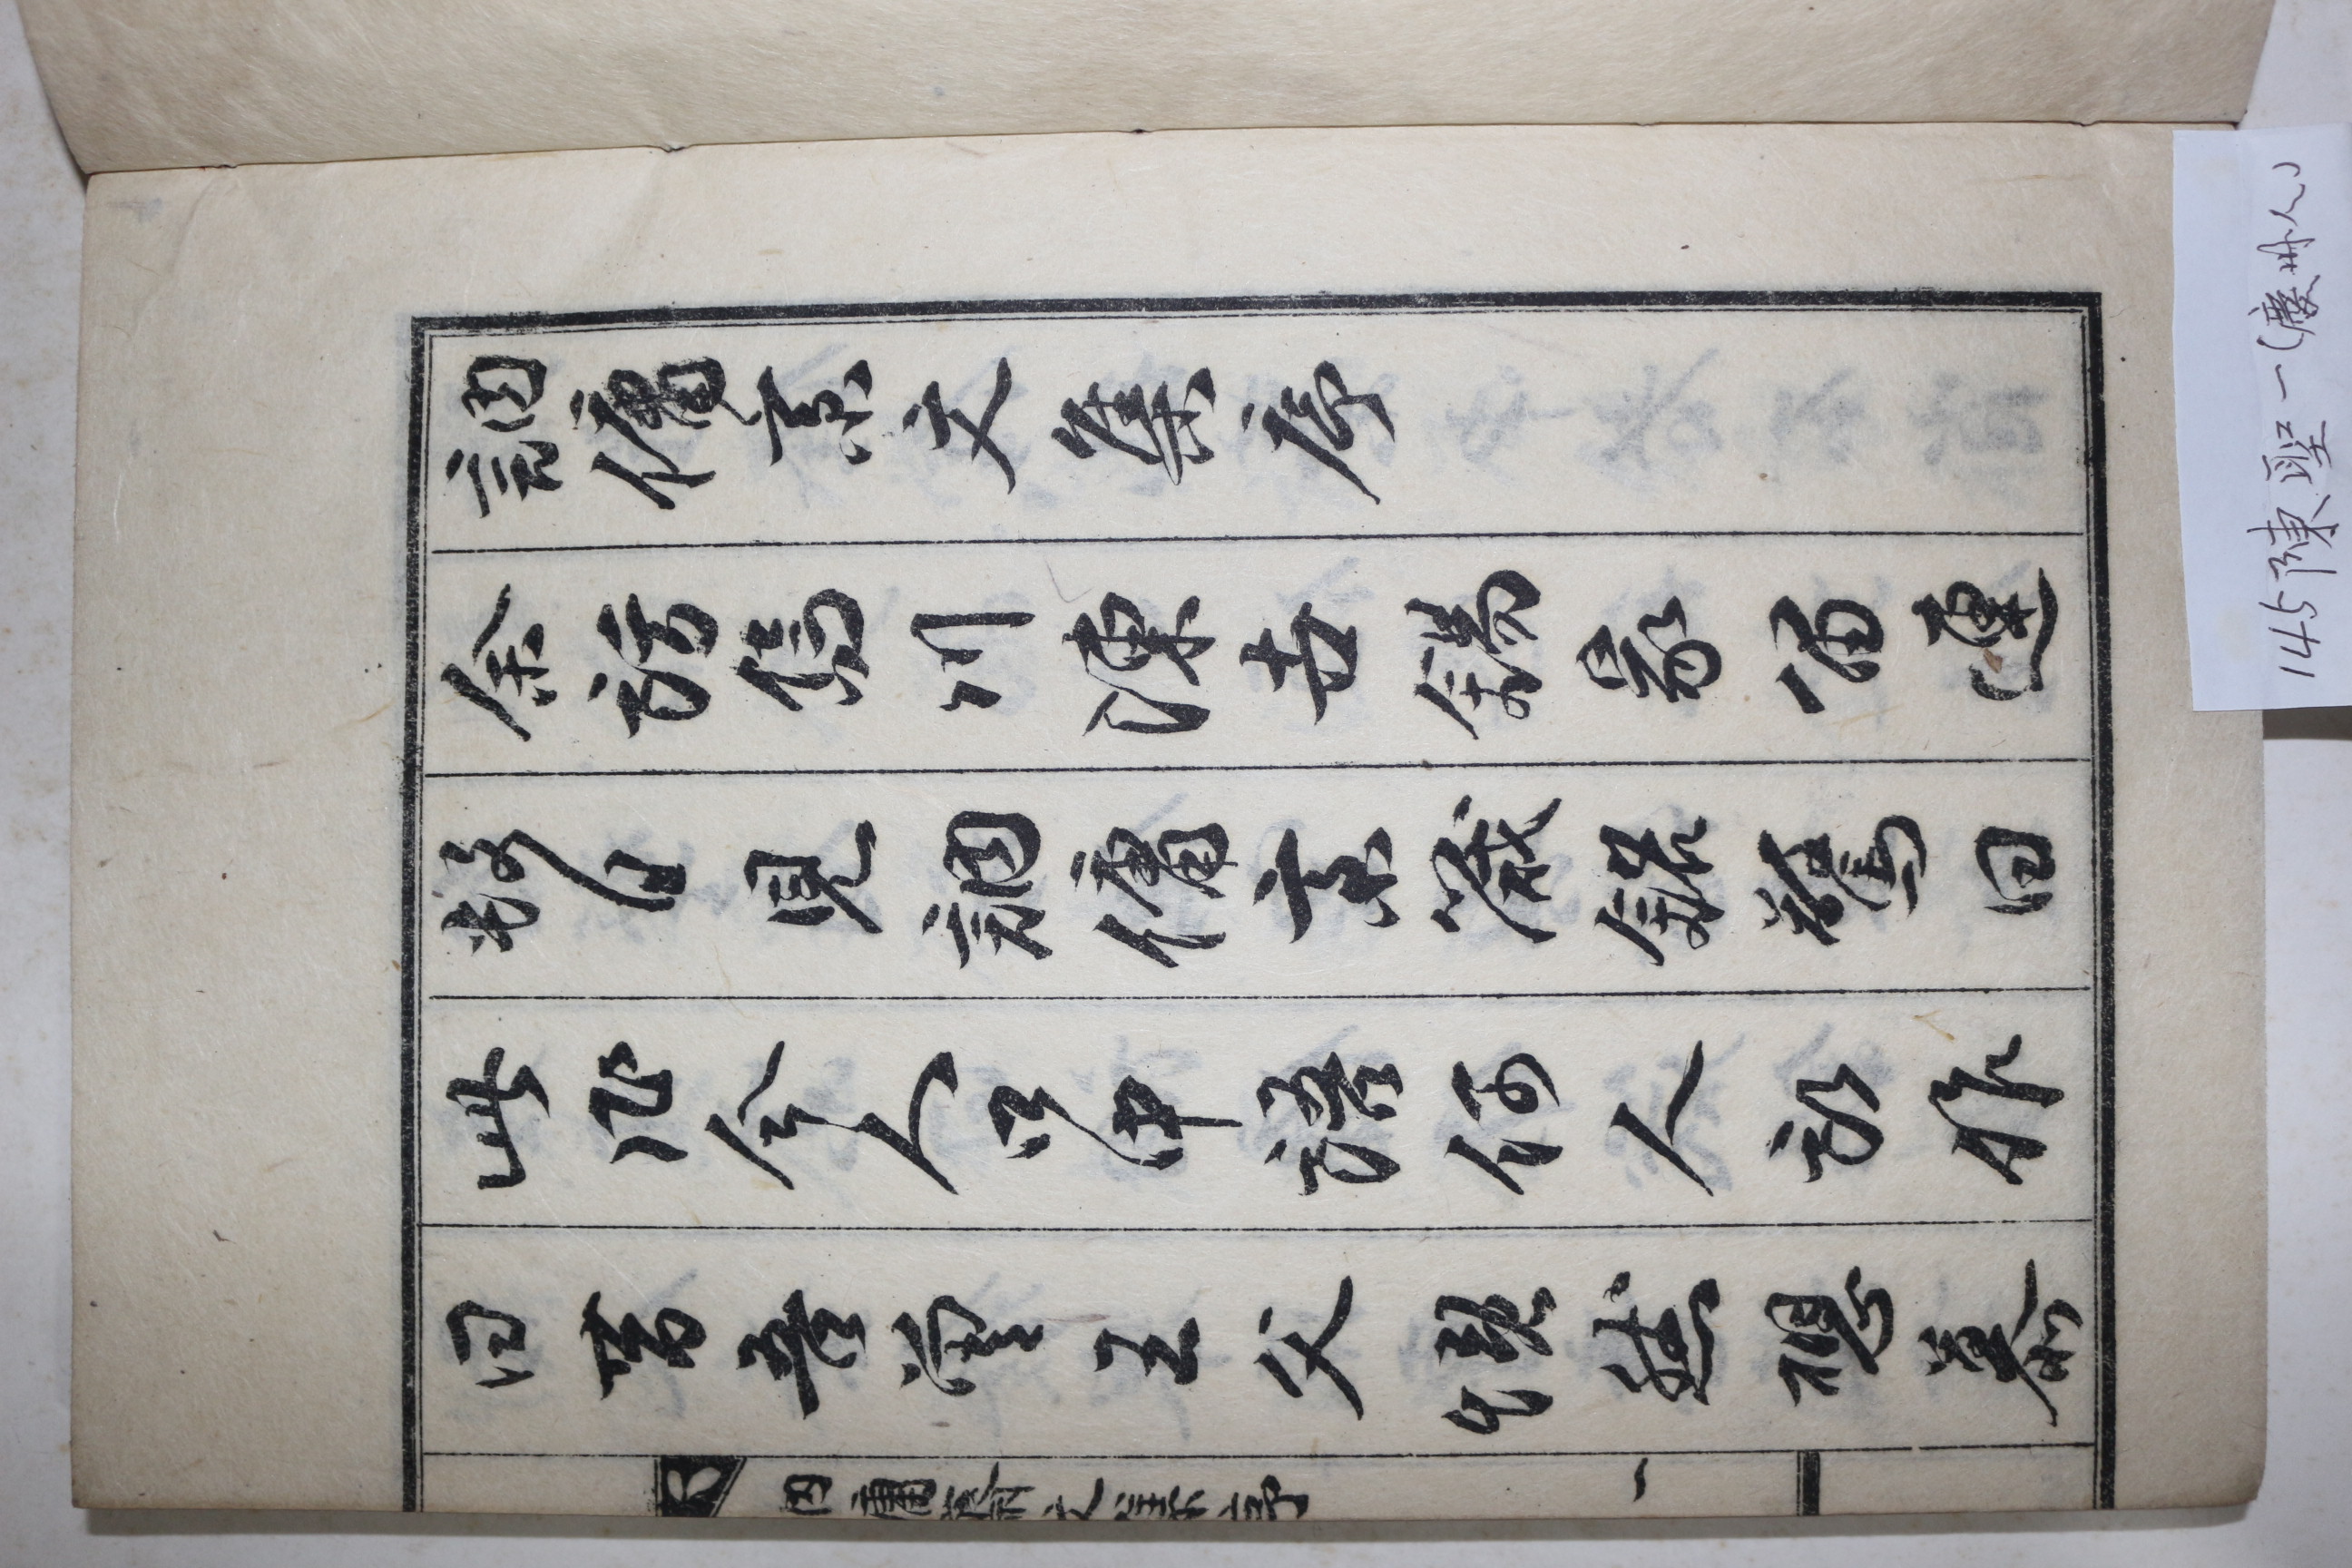 訥傭齋文集序
余訪雋川陳世錫家留連
數日見訥傭齋箴銘驚曰
此非今人口中語何人所作
曰昔吾曾王父慨然想慕
訥傭齋文集序
一
145陳聖一(慶州人)